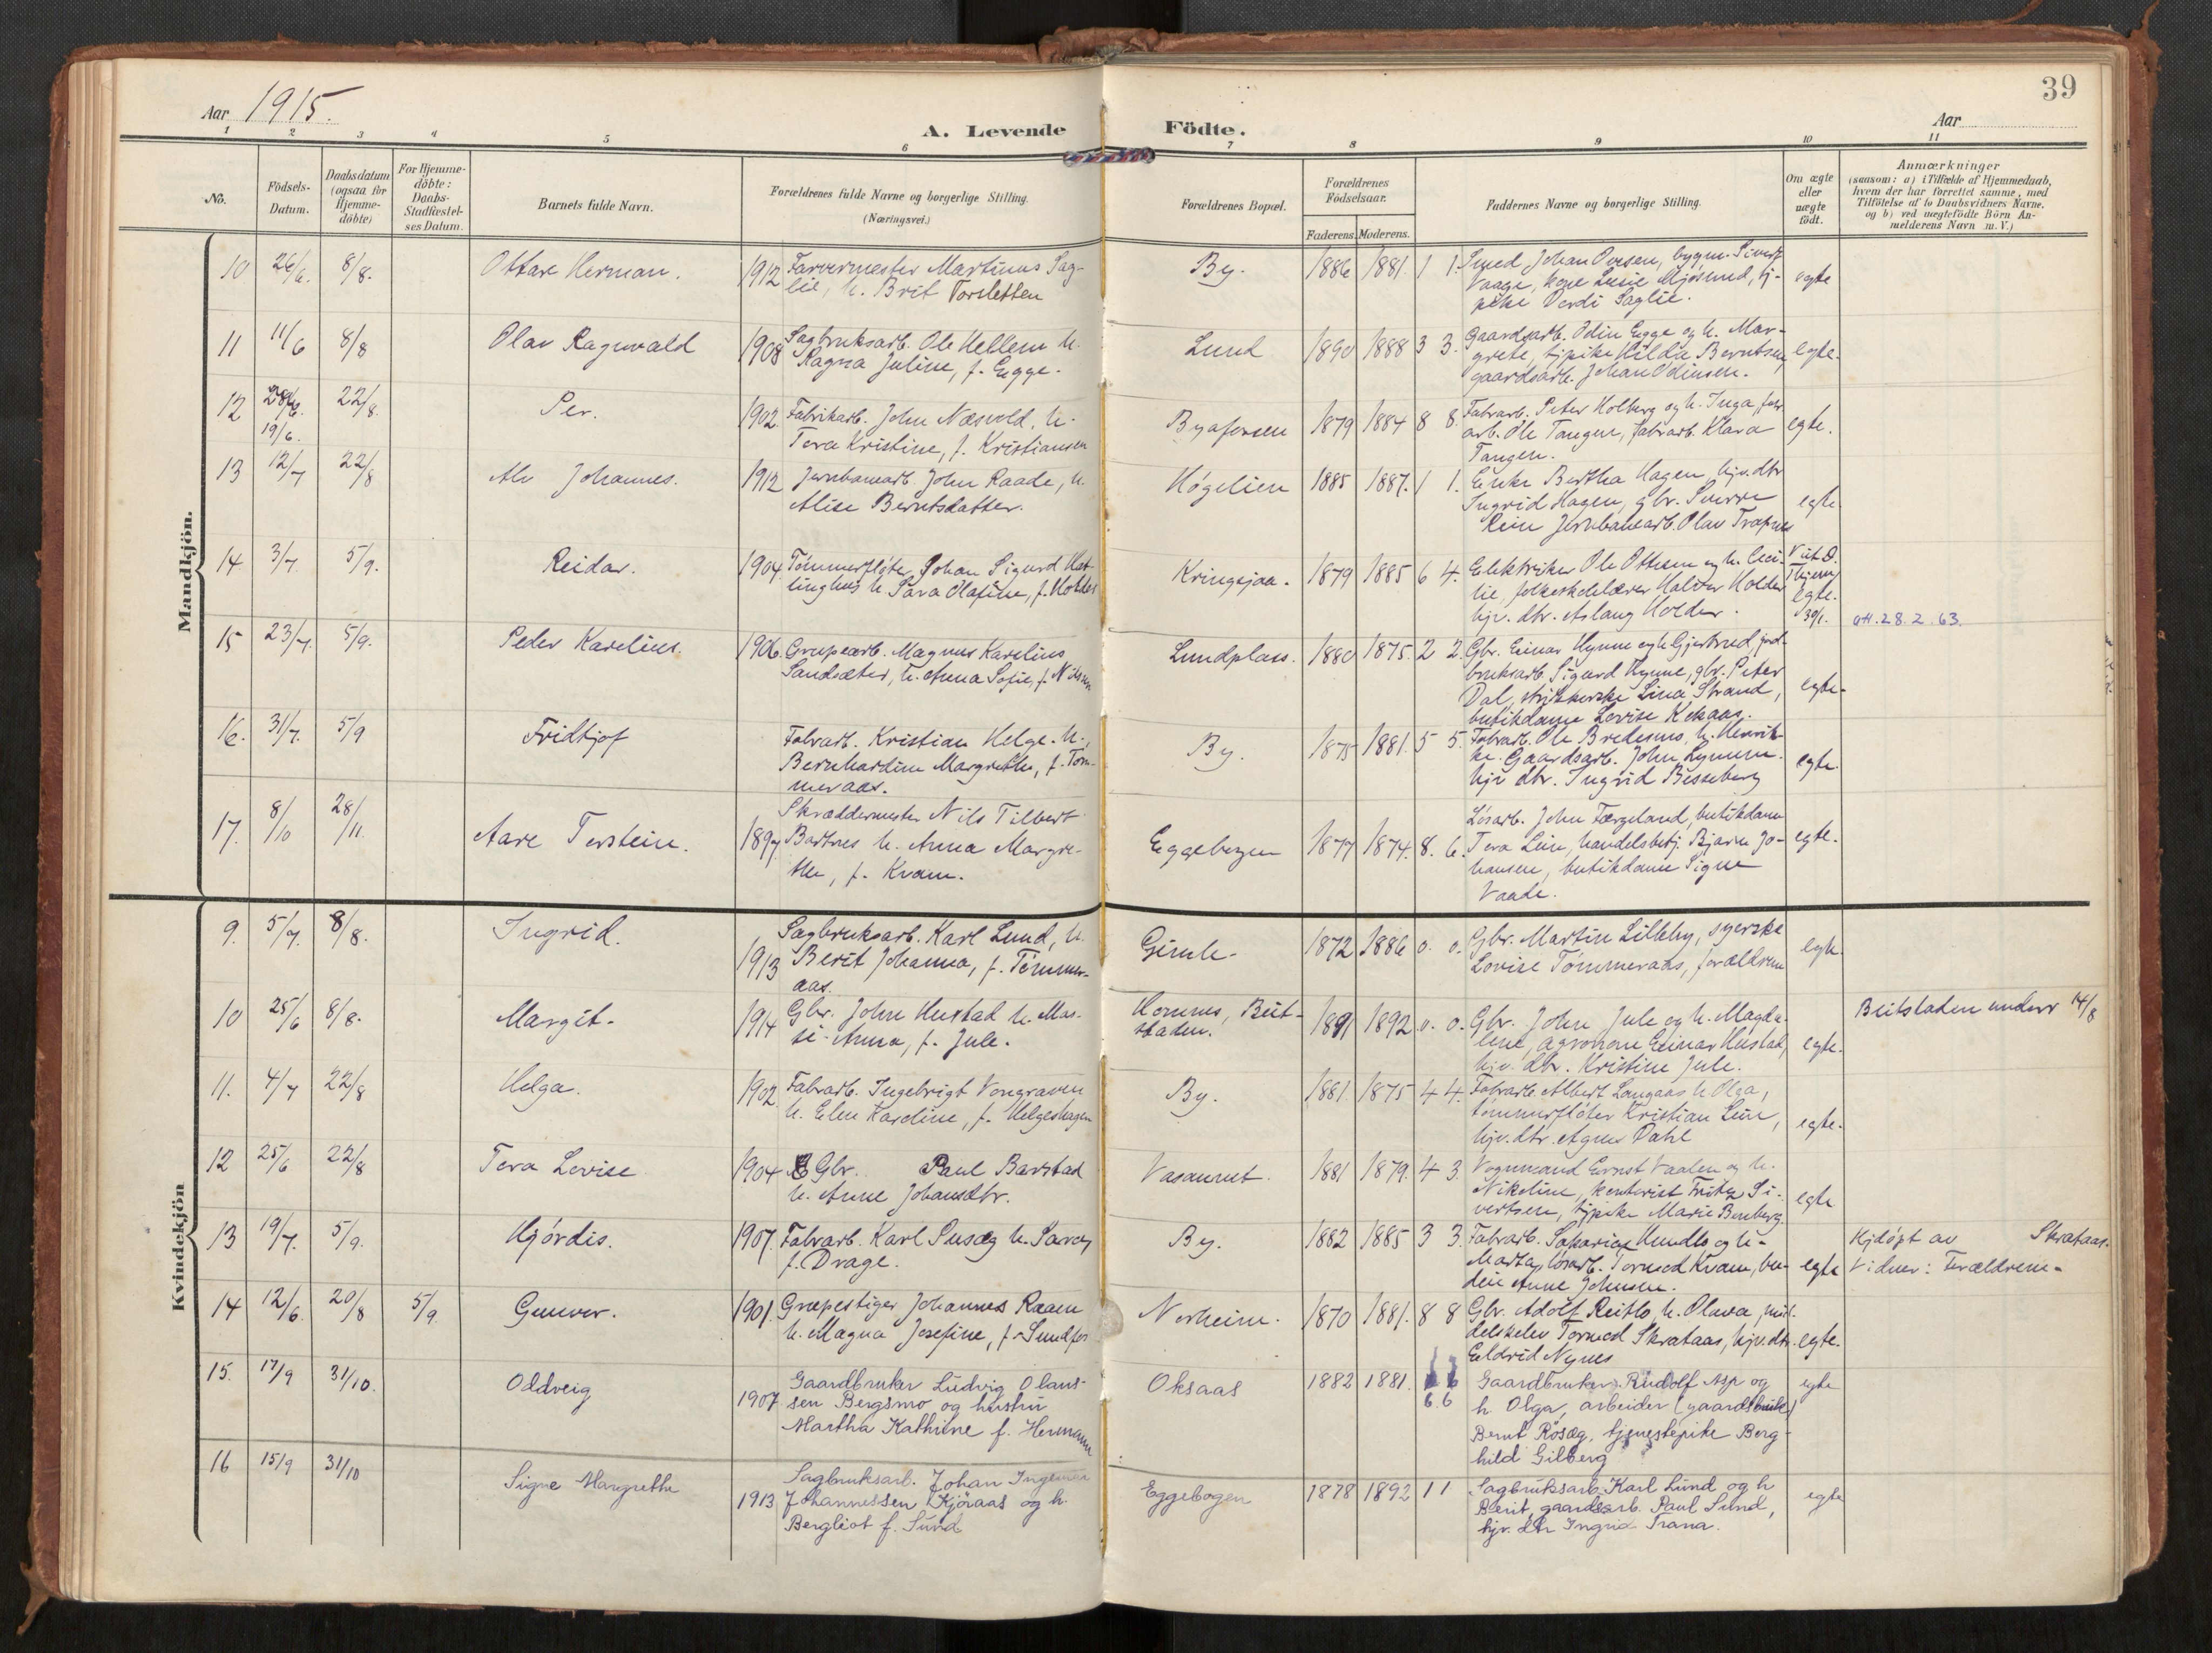 39
Aar 1915.
A. Levende Födte.
Aar
1 2 3 4 5 6 7 8 9 10 11
No.
Födsels-
Datum.
Daabsdatum
(ogsaa for
Hjemme-
döbte)
For Hjemme-
döbte:
Daabs-
Stadfæstel-
ses Datum.
Barnets fulde Navn.
Forældrenes fulde Navne og borgerlige Stilling.
(Næringsvei.)
Forældrenes Bopæl.
Forældrenes
Födselsaar.
Faderens. Moderens.
Faddernes Navne og borgerlige Stilling.
Om ægte
eller
uægte
födt.
Anmærkninger
(saasom: a) i Tilfælde af Hjemmedaab,
hvem der har forrettet samme, med
Tilföielse af to Daabsvidners Navne,
og b) ved uægtefödte Börn An-
melderens Navn m. V.)
Mandkjön.
10 26/6. 8/8. Ottar Herman. 1912 Farvermester Martinus Sag-
lie, h. Brit Torsletten
By. 1886 1881. 1 1. Smed Johan Ovesen, bygm. Sivert
Vaage, kone Lusie Mjøsund, tj-
pike Verdi Saglie.
egte
11 11/6 8/8 Olav Ragnvald 1908 Sagbruksarb. Ole Hellem h.
Ragna Juline, f. Egge.
Lund 1890 1888 3 3. Gaardsarb. Odin Egge og h. Mar-
grete, tjpike Hilda Berntsen,
gaardsarb. Johan Odinsen.
egte.
12 28/6. 19/6. 22/8. Per. 1902. Fabrikarb. John Næsvold, h.
Tora Kristine, f. Kristiansen
Byafossen 1879 1884 8 8. Fabrarb. Peter Holberg og h. Inga, fabr.
arb. Ole Tangen, fabrarb. Klara
Tangen.
egte.
13 12/7 22/8 Alv Johannes. 1912 Jernbanearb. John Raade, h.
Alise Berntsdatter.
Høgelien 1885 1887. 1 1. Enke Bertha Hagen, hjv. dtr
Ingrid Hagen, gbr. Sverre
Rein Jernbanearb. Olav Trapnes
egte
14 3/7. 5/9. Reidar. 1904. Tømmerfløter Johan Sigurd Het-
linghus h. Sara Olafine, f. Holder
Kringsjaa. 1879 1885 6 4. Elektriker Ole Ottesen og h. Ceci-
lie, folkeskolelærer Halvor Holder
hjv. dtr. Aslaug Holder.
egte.
att. 28.2.63.
15 23/7. 5/9. Peder Karelius. 1906. Grupearb. Magnus Karelius
Sandsæter, h. Anna Sofie, f. Nilsen
Lundplass. 1880 1875. 2 2. Gbr. Einar Hynne og h. Gjertrud, jord-
bruksarb. Sigurd Hynne, gbr. Peter
Dal, strykkerske Lina Strand,
butikdame Lovise Kekaas.
egte.
16. 31/7. 5/9 Fridtjof Fabrarb. Kristian Helge. h.,
Bernhardine Margrethe, f. Tøm-
meraas.
By. 1875 1881. 5 5. Fabrarb. Ole Bredesmo, h. Henrik-
ke. Gaardsarb. John Lynum.
hjv dtr. Ingrid Besseberg
egte.
17. 8/10 28/11. Aare Torstein. 1897. Skræddermester Nils Tilbert
Bartnes h. Anna Margre-
the, f. Kvam.
Eggebogen 1877 1874. 8. 6. Løsarb. John Færgeland, butikdame
Tora Lein, handelsbetj. Bjarne Jo-
hansen, butikdame Signe
Vaade.
egte.
Kvindekjön
9. 5/7. 8/8. Ingrid. 1913 Sagbruksarb. Karl Lund, h.
Berit Johanna, f. Tømmer-
aas.
Gimle. 1872 1886 0. 0. Gbr. Martin Lilleby, syerske
Lovise Tømmeraas, forældrene
egte.
10 25/6 8/8. Margit. 1914 Gbr. John Hustad h. Mar-
si Anna, f. Jule.
Homnes, Beit-
staden. 1891 1892 0. 0. Gbr. John Jule og h. Magda-
lene, agronom Einar Hustad,
hjv. dtr. Kristine Jule.
egte.
Beitstaden underr 14/8
11. 4/7 22/8 Helga. 1902. Fabrarb. Ingebrigt Vongraven
h. Elen Karoline, f. Helgeshagen
By. 1881. 1875 4 4. Fabrarb. Albert Langaas h Olga,
tømmerfløter Kristian Lein,
hjv. dtr. Agnes Dahl
egte.
12 25/6 22/8 Tora Lovise 1904 Gbr. Paul Barstad
h. Anne Johansdtr.
Vasaunet. 1881 1879. 4 3. Vognmand Ernst Vaalen og h.
Nikoline, kontorist Fritz Si-
vertsen, tjpike Marie Benberg
egte
13 19/7. 5/9. Hjórdis. 1907. Fabrarb. Karl Susæg h. Sara,
f. Drage.
By. 1882 1885 3 3. Fabrarb. Sakarias Hundlo og h.
Marta, løsarb. Tormod Kvam, bu-
deie Anne Johnsen.
egte
Hjdøpt av Skrataas.
Vidner: Forældrene.
14 12/6. 20/8 5/9. Gunvor. 1901. Grupestiger Johannes Raaen
h. Magna Josefine, f. Sundfor
Norheim. 1870 1881. 8 8 Gbr. Adolf Reitlo, h. Olava, mid-
delskolev Tormod Skrataas, hjv. dtr.
Eldrid Nynes
egte.
15. 17/9 31/10. Oddveig 1907. Gaardbruker Ludvig Olaus-
sen Bergsmo og hustru
Martha Kathrine f. Hermann
Oksaas 1882 1881. 6 6 Gaardbruker Rudolf Asp og
h. Olga, arbeider (gaardsbruk)
Bernt Rösæg, tjenestepike Borg-
hild Gilberg
egte
16 15/9 31/10 Signe Margrethe 1913 Sagbruksarb. Johan Ingemar
Johannessen Kjöraas og h.
Bergliot f. Sund
Eggebogen 1878 1892 1 1 Sagbruksarb. Karl Lund og h
Berit, gaardsarb. Paul Sund,
hjv. dtr Ingrid Trana.
egte